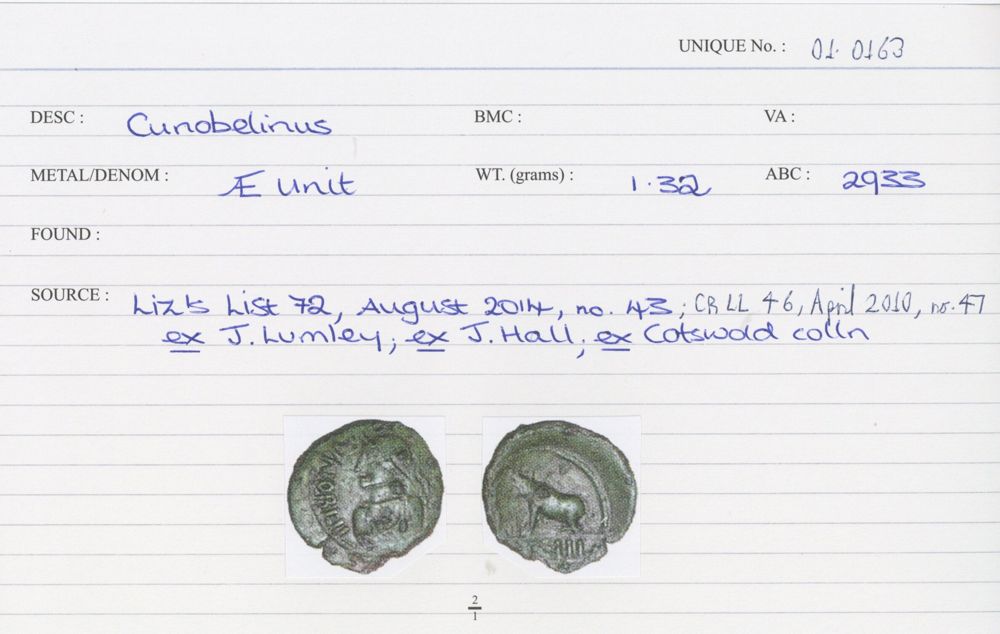 UNIQUE No. : 01. 0163
DESC : Cunobelinus BMC : VA :
METAL/DENOM : Æ Unit WT. (grams) : 1.32 ABC : 2933
FOUND :
SOURCE : Liz's List 72, August 2014, no. 43; CR LL 46, April 2010, no. 47
ex J. Lumley; ex J. Hall; ex Cotswold colln
2
1